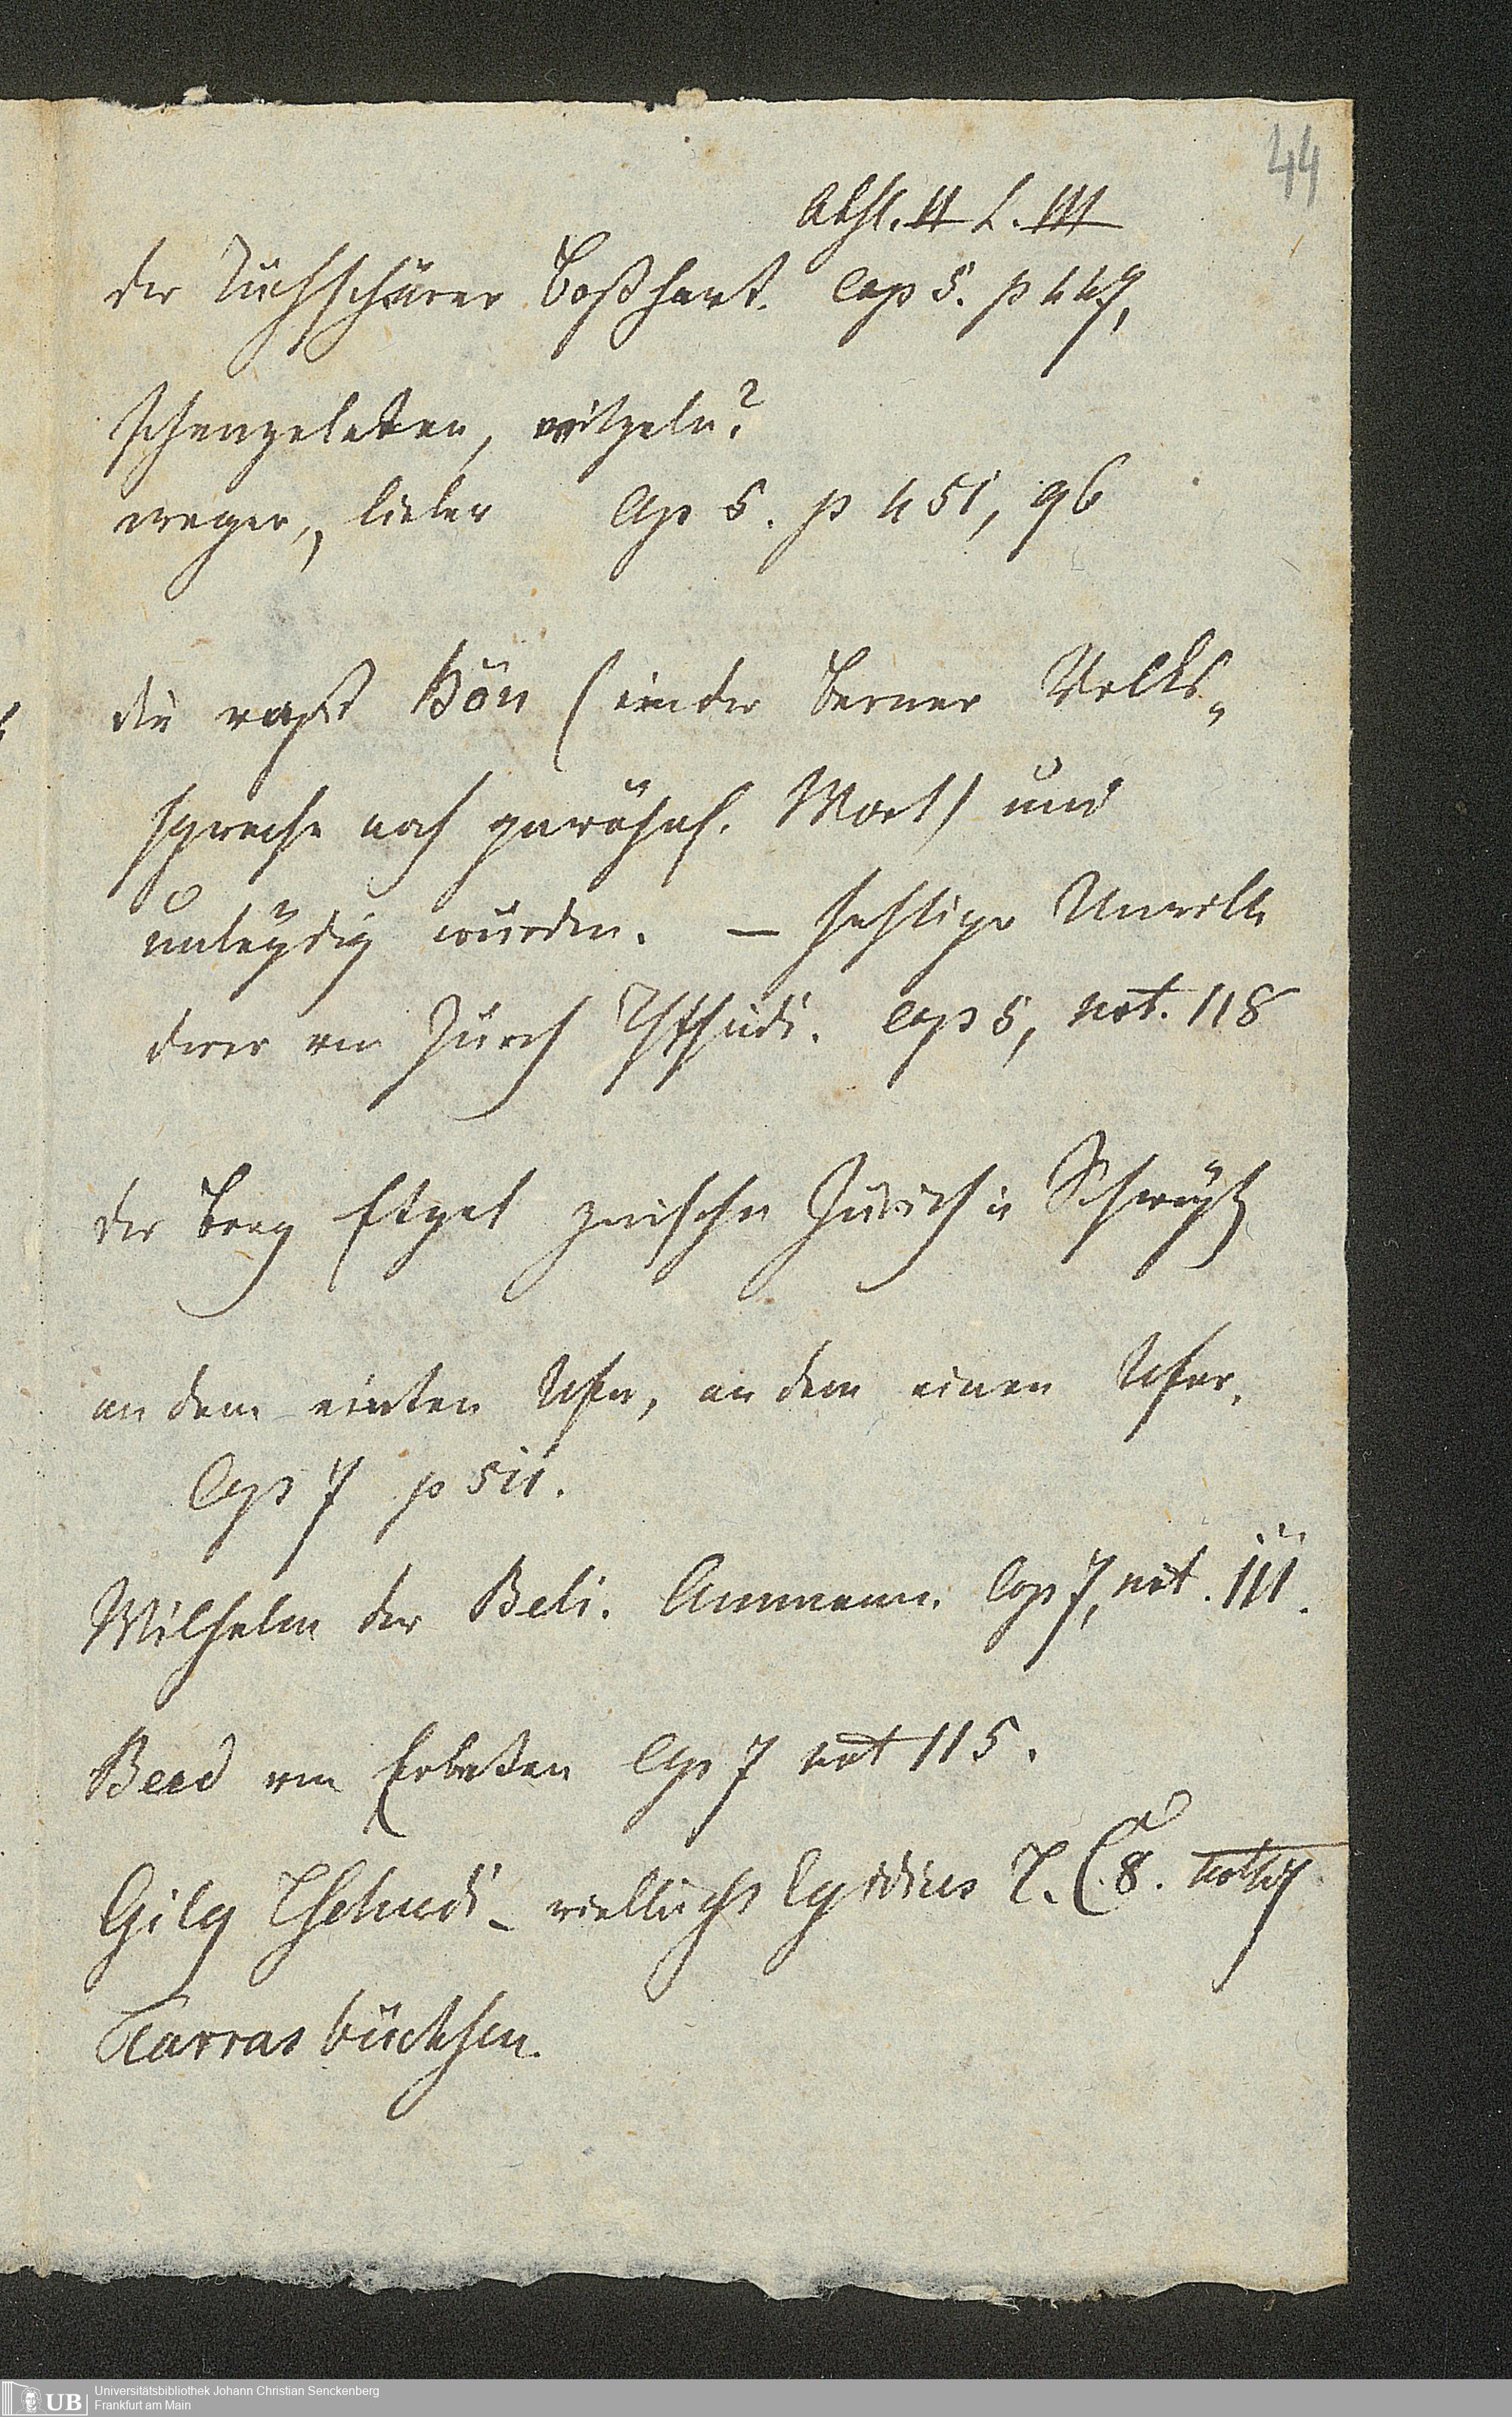 44
Abth. II L. III
der Tuchschärer Boßhart. Cap 5. p 449,
schenzeleten, witzeln?
weger, lieber Cap 5. p 451, 96
die rast Hön (in der Berner Volks-
sprache noch gewöhnl. Wort) und
unleydig wurden. – heftiger Unwille
derer von Zürch Tschudi. Cap 5, not. 118
der Berg Etzel zwischen Zürich u Schwytz
an dem einten Ufer, an dem einen Ufer.
Cap 7 p 511.
Wilhelm der Beli. Ammann. Cap 7, not. 111.
Beed von Erbetten Cap 7 not 115.
Gilg Tschudi – vielleicht Egidius T. C. 8. not
Tarrasbüchsen.
Universitätsbibliothek Johann Christian Senckenberg
UB
Frankfurt am Main